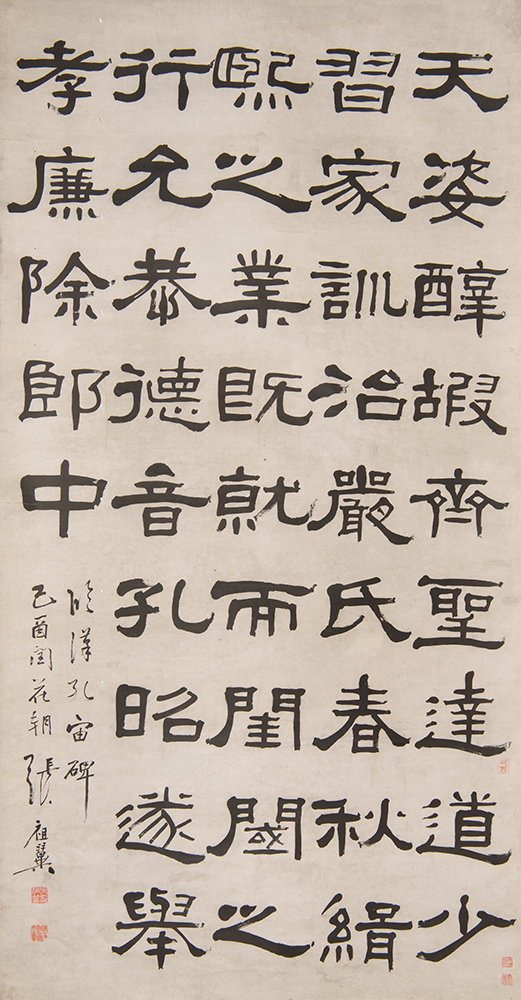 天姿醇嘏齊聖達道少
習家訓治嚴氏春秋緝
熙之業既就而閨閾之
行允恭德音孔昭遂舉
孝廉除郎中
臨漢孔宙碑
己酉閏花朝 張祖翼